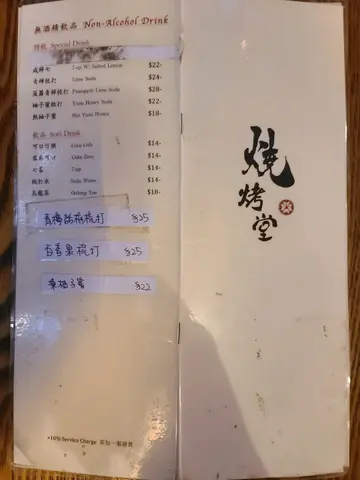 無酒精飲品 Non-Alcohol Drink
特飲 Special Drink
咸檸七 7-up W/ Salted Lemon $22-
青檸梳打 Lime Soda $24-
菠蘿青檸梳打 Pineapple Lime Soda $28-
柚子蜜梳打 Yuzu Honey Soda $22-
熱柚子蜜 Hot Yuzu Honey $18-
飲品 Soft Drink
可口可樂 Coca Cola $14-
零系可口 Coke Zero $14-
七喜 7 up $14-
梳打水 Soda Water $14-
烏龍茶 Oolong Tea $18-
$25
百香果梳打 $25
$22
+10% Service Charge 另加一服務費
燒烤堂